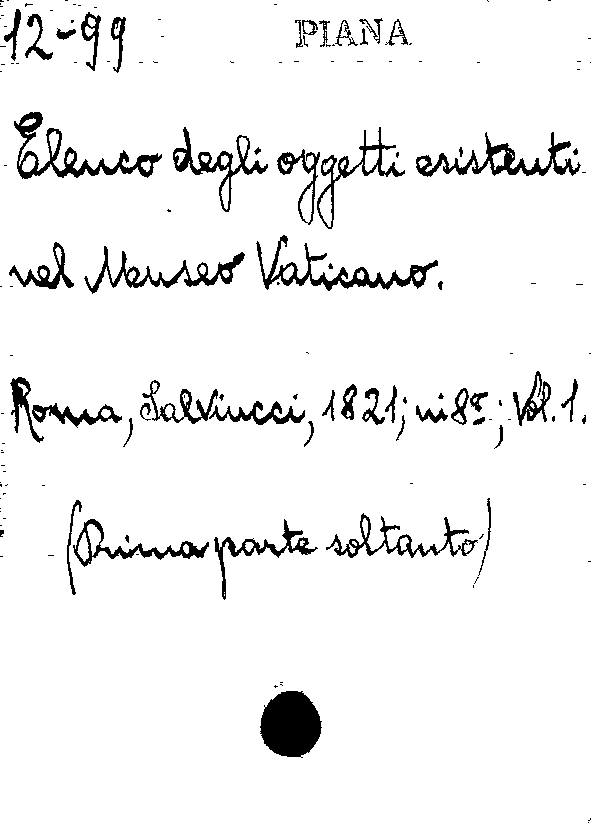 12-99 PIANA
Elenco degli oggetti esistenti
nel Museo Vaticano.
Roma, Salviucci, 1821; in 8º; Vol. 1.
(Prima parte soltanto)